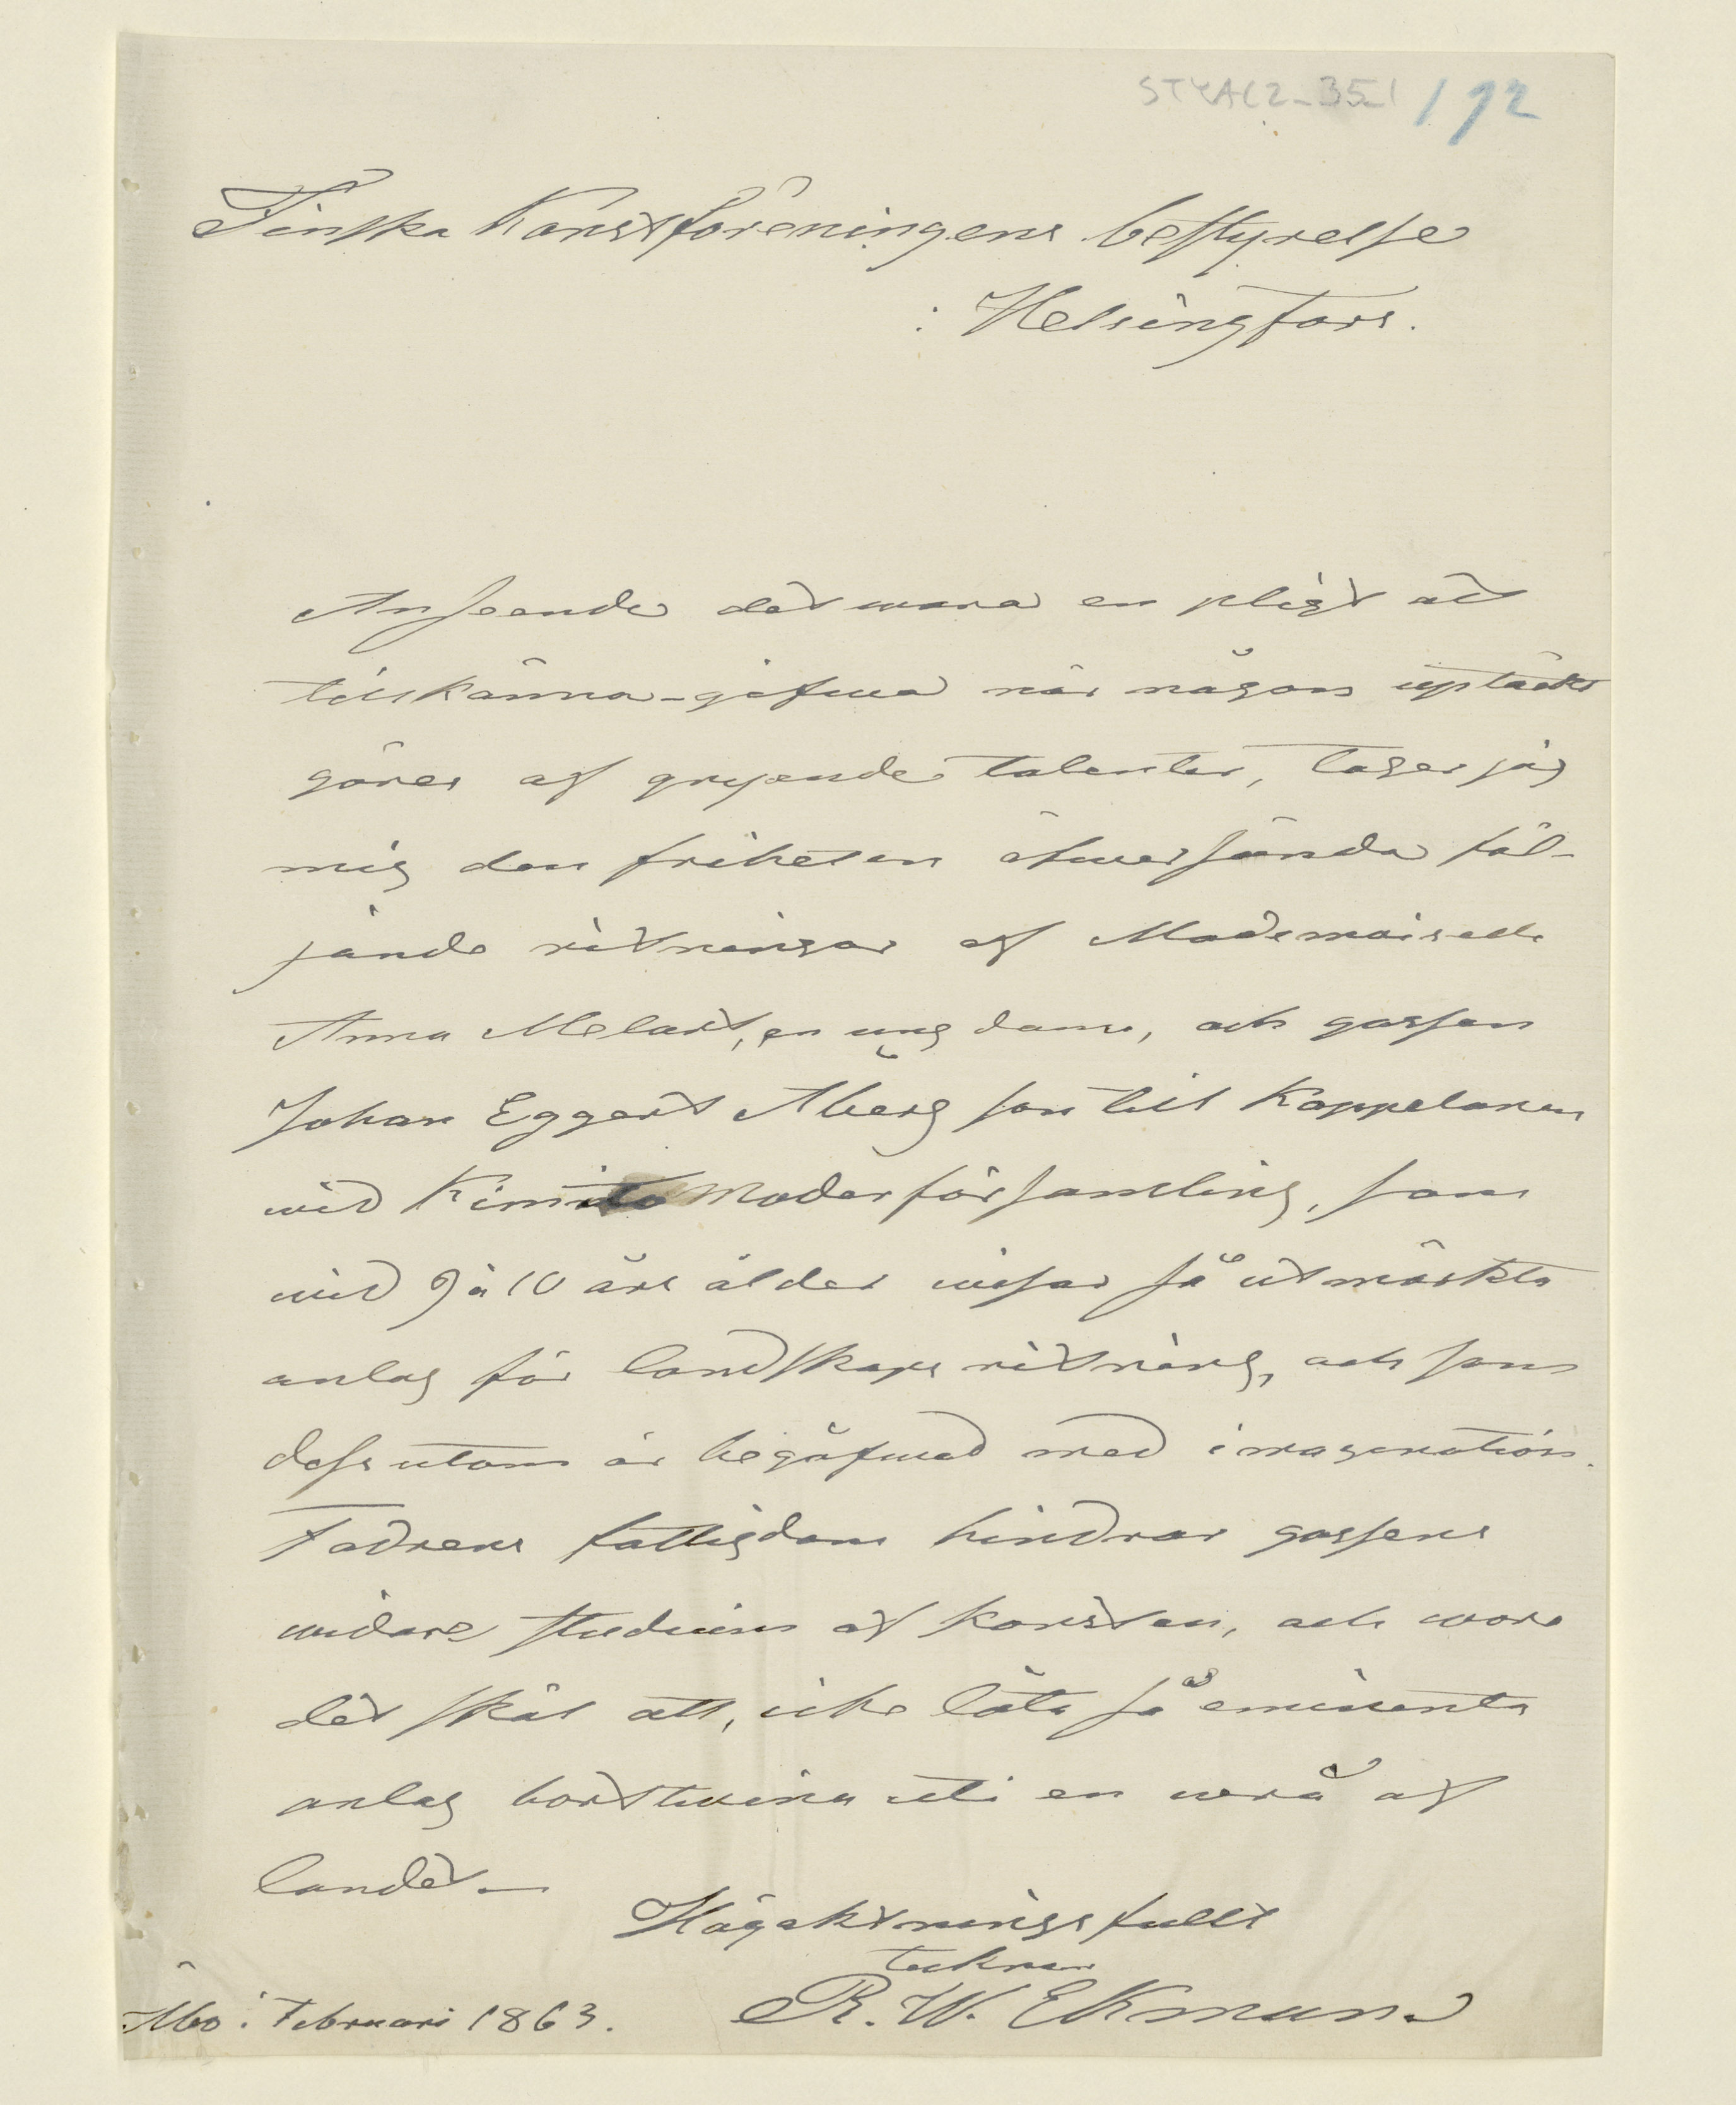 STYA C2_35_1 / 92
Finska Konstföreningens bestyrelse
i Helsingfors.
Anseende det wara en pligt at
tillkänna-gifwa när någon uptäckt
göres af gryende talenter, tager jag
mig den friheten öfwersända föl-
jande ritningar af Mademoiselle
Anna Melart, en ung dame, och gossen
Johan Eggert Åberg son till Kappelanen
wid Kimito Moderförsamling, som
wid 9 à 10 års ålder wisar så utmärkta
anlag för landskaps ritning, och som
dessutom är begåfwad med imagination.
Fadrens fattigdom hindrar gossens
widare studium af konsten, och wore
det skäl att, icke låta så eminenta
anlag bortwina uti en wrå af
landet_
Högaktningsfullt
tecknar
Åbo i Februari 1863. R. W. Ekman